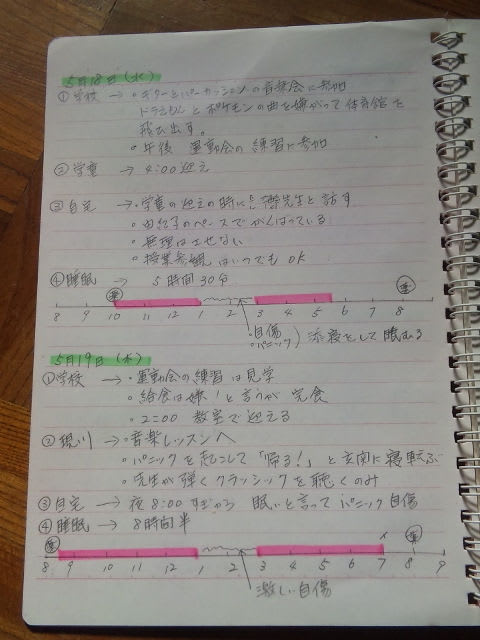 5月18日(水)
①学校 → ・ギターとパーカッションの音楽会に参加
ドラえもんとポケモンの曲を嫌がって体育館を
飛び出す。
・午後 運動会の練習に参加
②学童 → 4:00迎え
③自宅 → ・学童の迎えの時に 先生と話す
・由紀子のペースでがんばっている
・無理はさせない
・授業参観はいつでもOK
④睡眠 → 5時間30分
薬
8 9 10 11 12 1 2 3 4 5 6 7 8 9
・自傷
・パニック) 添寝をして眠むる
5月19日(木)
①学校 → ・運動会の練習は見学
・給食は嫌!と言うが完食
・2:00 教室で迎える
② → ・音楽レッスンへ
・パニックを起こして「帰る!」と玄関に寝転ぶ
・先生が弾くクラシックを聴くのみ
③自宅 → 夜8:00すぎから 眠いと言ってパニック自傷
④睡眠 → 8時間半
薬
8 9 10 11 12 1 2 3 4 5 6 7 8 9
激しい自傷